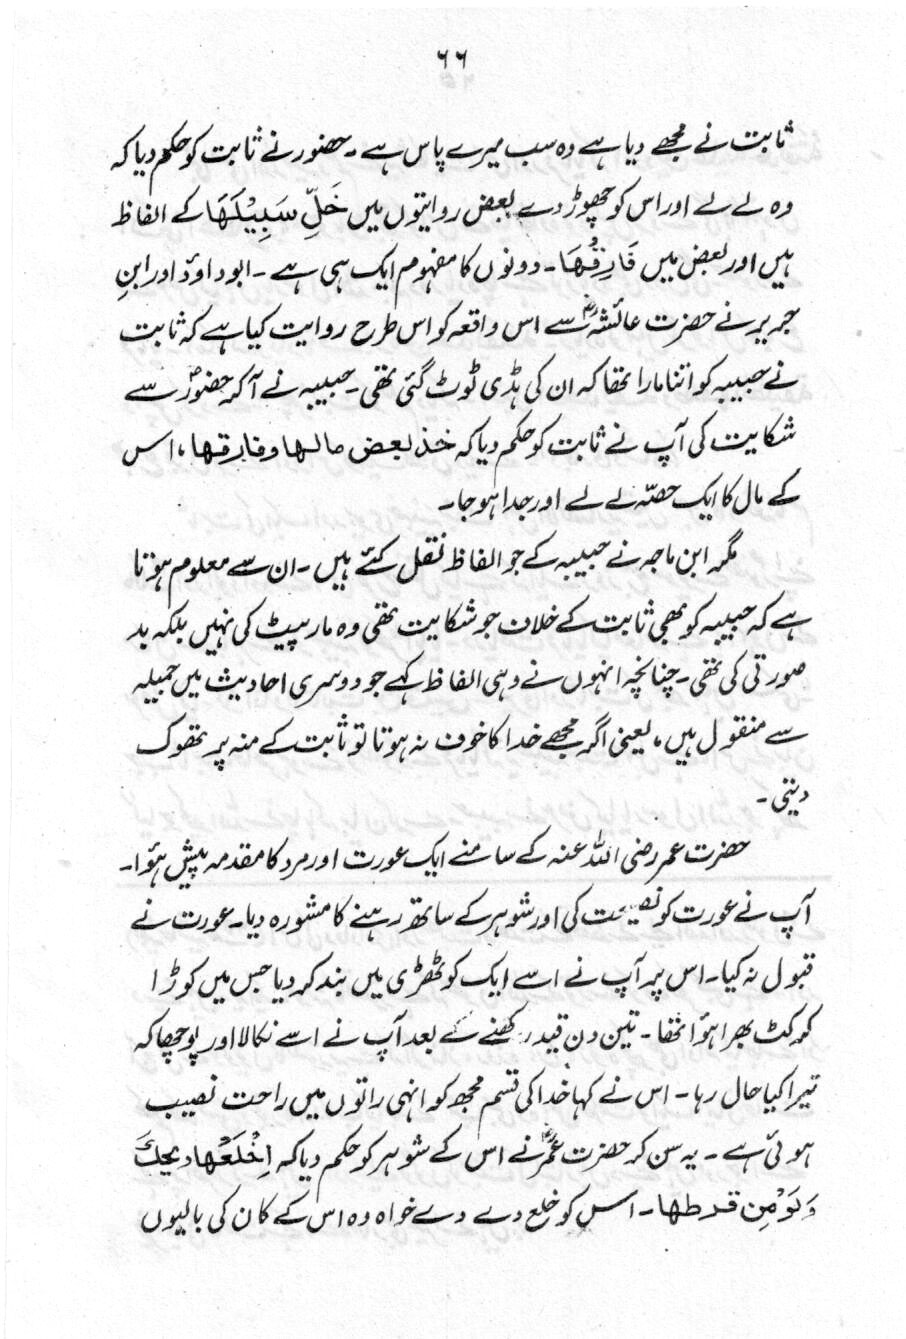 ۶۶
ثابت نے مجھے دیا ہے وہ سب میرے پاس ہے۔ حضور نے ثابت کو حکم دیا کہ
وہ لے لے اور اس کو چھوڑ دے بعض روایتوں میں خَلِّ سَبِیْلَهَا کے الفاظ
ہیں اور بعض میں فَارِقْهَا۔ دونوں کا مفہوم ایک ہی ہے۔ ابوداؤد اور ابنِ
جریر نے حضرت عائشہؓ سے اس واقعہ کو اس طرح روایت کیا ہے کہ ثابت
نے حبیبہ کو اتنا مارا تھا کہ ان کی ہڈی ٹوٹ گئی تھی۔ حبیبہ نے آکر حضورؐ سے
شکایت کی آپ نے ثابت کو حکم دیا کہ خذ بعض مالها وفارقها، اس
کے مال کا ایک حصّہ لے لے اور جدا ہوجا۔
مگر ابن ماجہ نے حبیبہ کے جو الفاظ نقل کئے ہیں۔ ان سے معلوم ہوتا
ہے کہ حبیبہ کو بھی ثابت کے خلاف جو شکایت تھی وہ مار پیٹ کی نہیں بلکہ بد
صورتی کی تھی۔ چنانچہ انہوں نے وہی الفاظ کہے جو دوسری احادیث میں جمیلہ
سے منقول ہیں، یعنی اگر مجھے خدا کا خوف نہ ہوتا تو ثابت کے منہ پر تھوک
دیتی۔
حضرت عمر رضی اللہ عنہ کے سامنے ایک عورت اور مرد کا مقدمہ پیش ہؤا۔
آپ نے عورت کو نصیحت کی اور شوہر کے ساتھ رہنے کا مشورہ دیا۔ عورت نے
قبول نہ کیا۔ اس پر آپ نے اسے ایک کوٹھڑی میں بند کر دیا جس میں کوڑا
کرکٹ بھرا ہؤا تھا۔ تین دن قید رکھنے کے بعد آپ نے اسے نکالا اور پوچھا کہ
تیرا کیا حال رہا۔ اس نے کہا خدا کی قسم مجھ کو انہی راتوں میں راحت نصیب
ہوئی ہے۔ یہ سن کر حضرت عمرؓ نے اس کے شوہر کو حکم دیا کہ اِخْلَعْها ويحكَ
وَلَوْ مِن قرطها۔ اس کو خلع دے دے خواہ وہ اس کے کان کی بالیوں